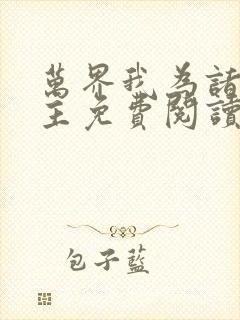 萬界我為諸
主免費閱讀
包子藍